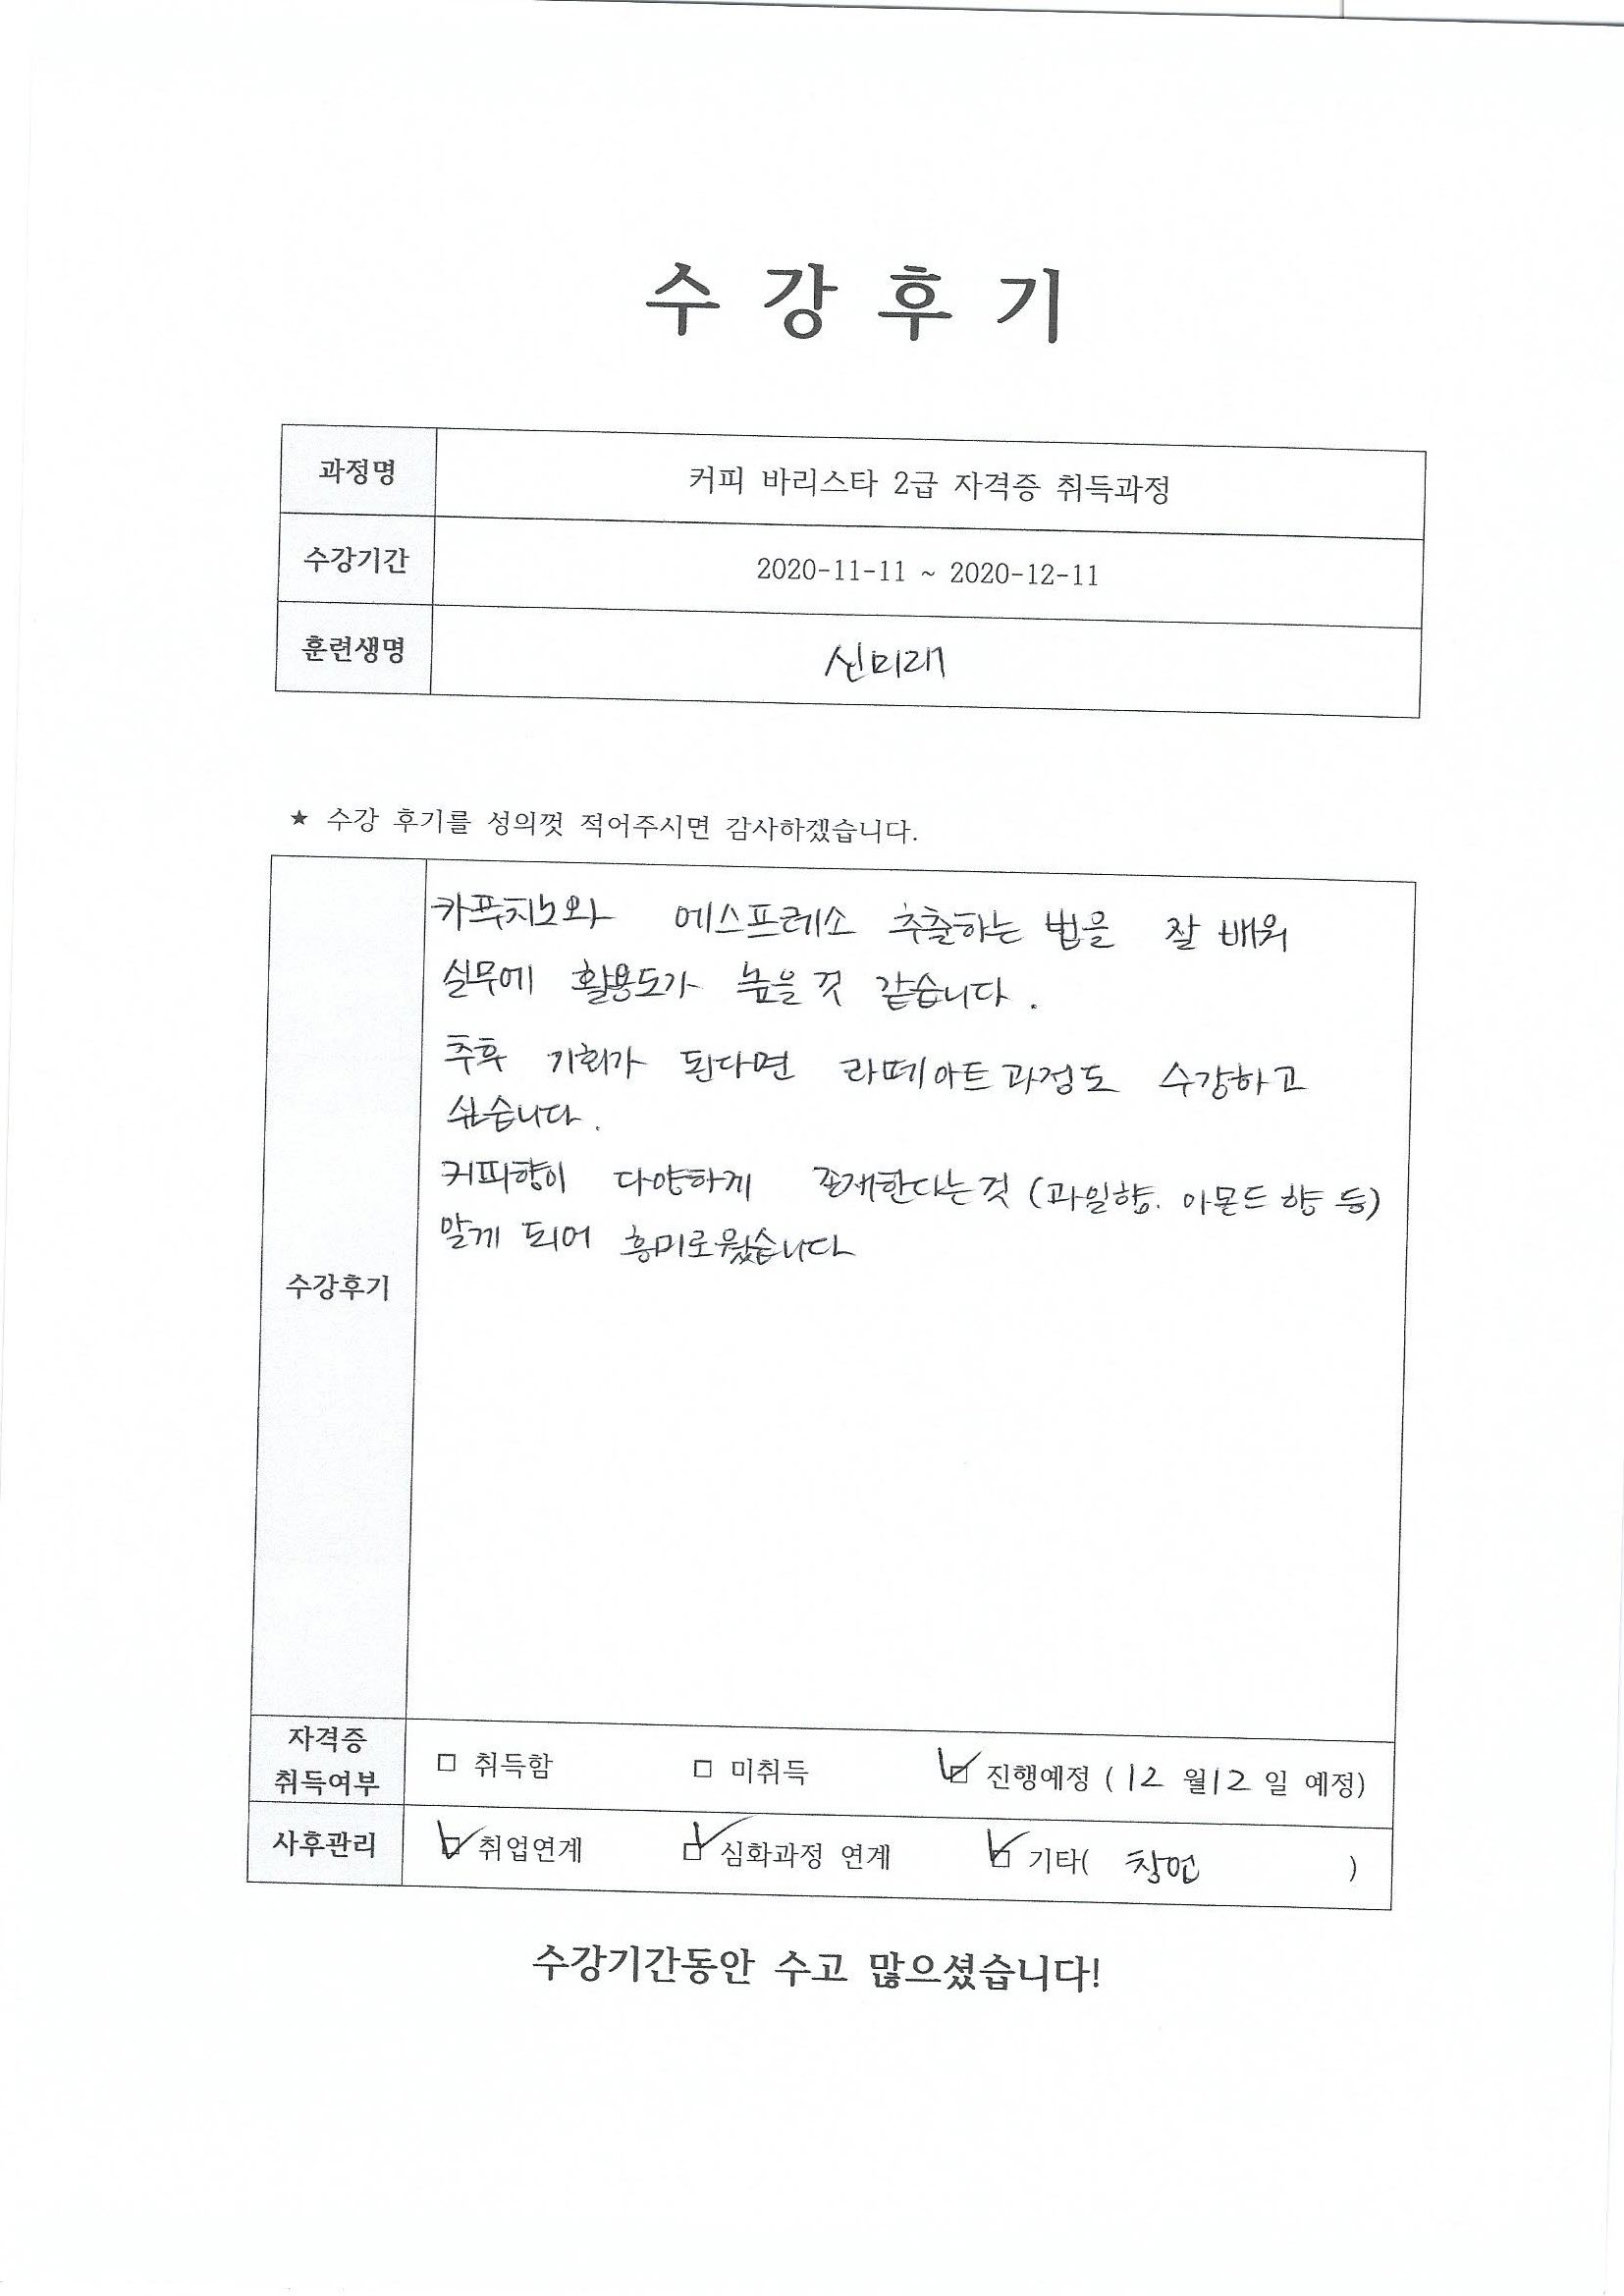 수 강 후 기
과정명 커피 바리스타 2급 자격증 취득과정
수강기간 2020-11-11 ~ 2020-12-11
훈련생명 신미래
★ 수강 후기를 성의껏 적어주시면 감사하겠습니다.
카푸치노와 에스프레소 추출하는 법을 잘 배워
실무에 활용도가 높을 것 같습니다.
추후 기회가 된다면 라떼아트과정도 수강하고
싶습니다.
커피향이 다양하게 존재한다는것 (과일향. 아몬드 향 등)
알게 되어 흥미로웠습니다
수강후기
자격증
취득여부
□ 취득함 □ 미취득 ☑ 진행예정 ( 12 월 12 일 예정)
사후관리 ☑ 취업연계 ☑ 심화과정 연계 ☑ 기타( 창업 )
수강기간동안 수고 많으셨습니다!